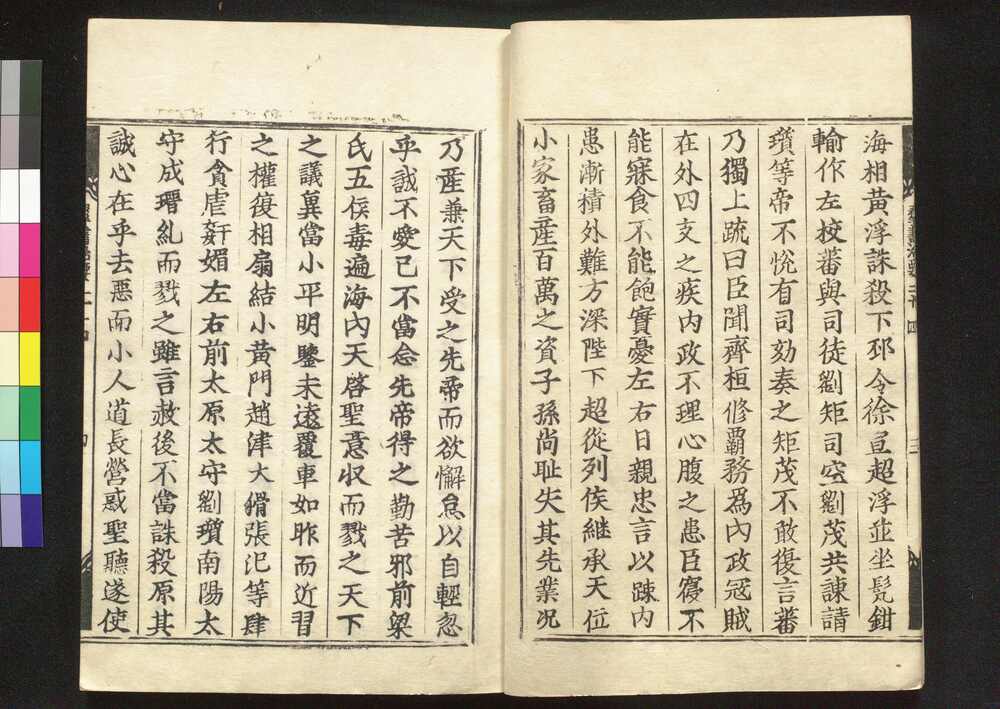 海相黃浮誅殺下邳令徐宣超浮並坐髡鉗
輸作左校蕃與司徒劉矩司空劉茂共諫請
瓚等帝不悅有司劾奏之矩茂不敢復言蕃
乃獨上疏曰臣聞齊桓修霸務爲內政冦賊
在外四支之疾內政不理心腹之患臣寢不
能寐食不能飽實憂左右日親忠言以踈內
患漸積外難方深陛下超從列侯継承天位
小家畜產百萬之資子孫尚耻失其先業况
乃產兼天下受之先帝而欲懈怠以自輕忽
乎誠不愛己不當念先帝得之勤苦邪前梁
氏五侯毒遍海內天啓聖意收而戮之天下
之議冀當小平明鑒未遠覆車如昨而近習
之權復相扇結小黃門趙津大猾張汜等肆
行貪虐姧媚左右前太原太守劉瓚南陽太
守成瑨糺而戮之雖言赦後不當誅殺原其
誠心在乎去惡而小人道長營惑聖聽遂使